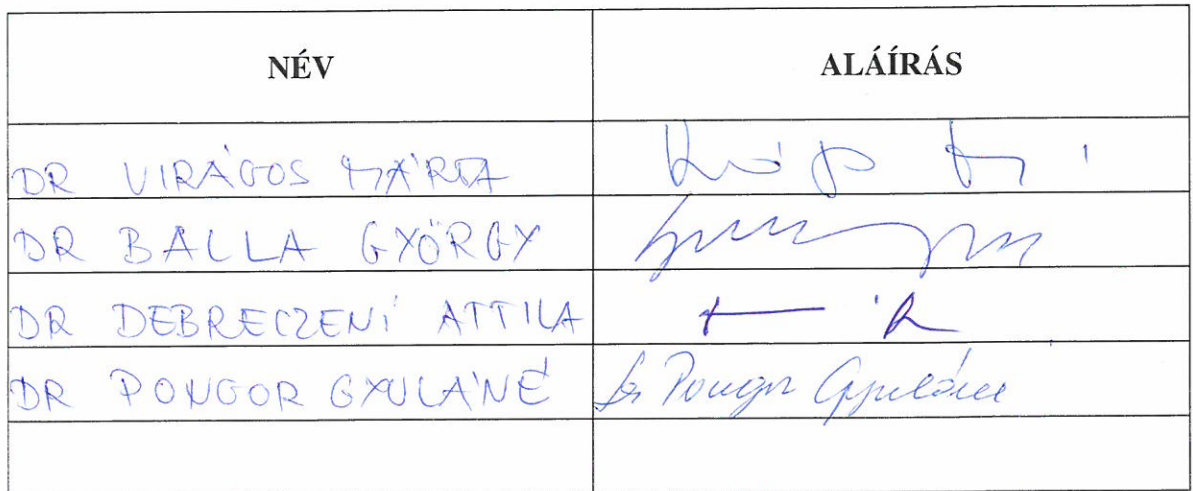 NÉV ALÁÍRÁS
DR VIRÁGOS MÁRTA
DR BALLA GYÖRGY
DR DEBRECZENI ATTILA
DR PONGOR GYULÁNÉ Dr Pongor Gyuláné